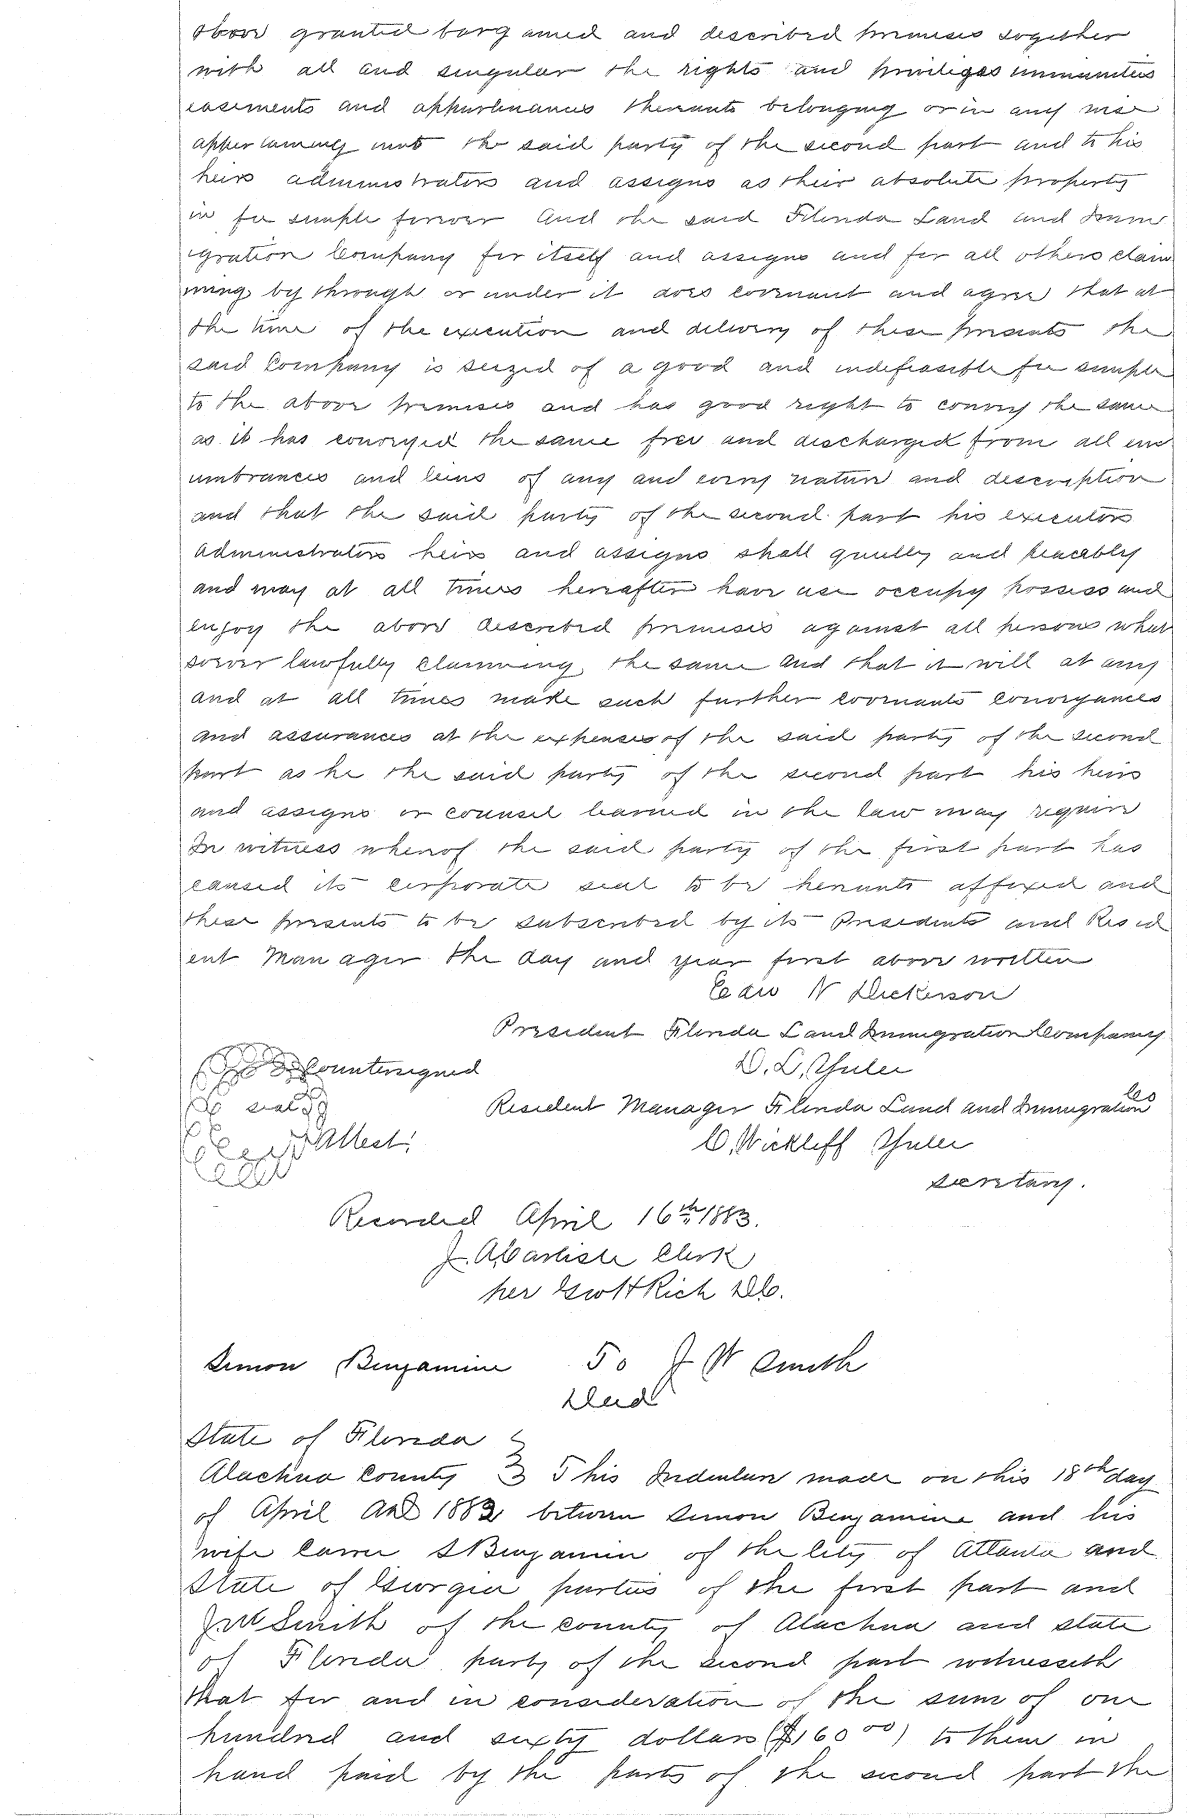 above granted barg ained and described premises together
with all and singular the rights and privileges immunities
easements and appurtenances thereunto belonging or in any wise
appertaining unto the said party of the second part and to his
heirs administrators and assigns as their absolute property
in fee simple forever And the said Florida Land and Immi
gration Company for itself and assigns and for all others claim
ming by through or under it does covenant and agree that at
the time of the execution and delivery of these presents the
said Company is seized of a good and indefeasible fee simple
to the above premises and has good right to convey the same
as it has conveyed the same free and discharged from all enc
umbrances and liens of any and every nature and description
and that the said party of the second part his executors
administrators heirs and assigns shall quietly and peaceably
and may at all times hereafter have use occupy possess and
enjoy the above described premises against all persons what
soever lawfully claimming the same And that it will at any
and at all times make such further covenants conveyances
and assurances at the expenses of the said party of the second
part as he the said party of the second part his heirs
and assigns or counsel learned in the law may require
In witness whereof the said party of the first part has
caused its corporate seal to be hereunto affixed and
these presents to be subscribed by its Presidents and Resid
ent Manager the day and year first above written
Edw N Dickerson
President Florida Land Immigration Company
Countersigned D. L. Yulee
seal Resident Manager Florida Land and Immigration Co
Attest: C. Wickliff Yulee
secretary.
Recorded April 16th 1883.
J. A Carlisle Clerk
per Scott Rich DC.
Simon Benjamine To J W Smith
Deed
State of Florida
Alachua County This Indenture made on this 18th day
of April AD 1882 between Simon Benjamine and his
wife Carrie S Benjamin of the City of Atlanta and
State of Georgia parties of the first part and
J W Smith of the county of Alachua and state
of Florida party of the second part witnesseth
that for and in consideration of the sum of one
hundred and sixty dollars ($160 00) to them in
hand paid by the party of the second part the